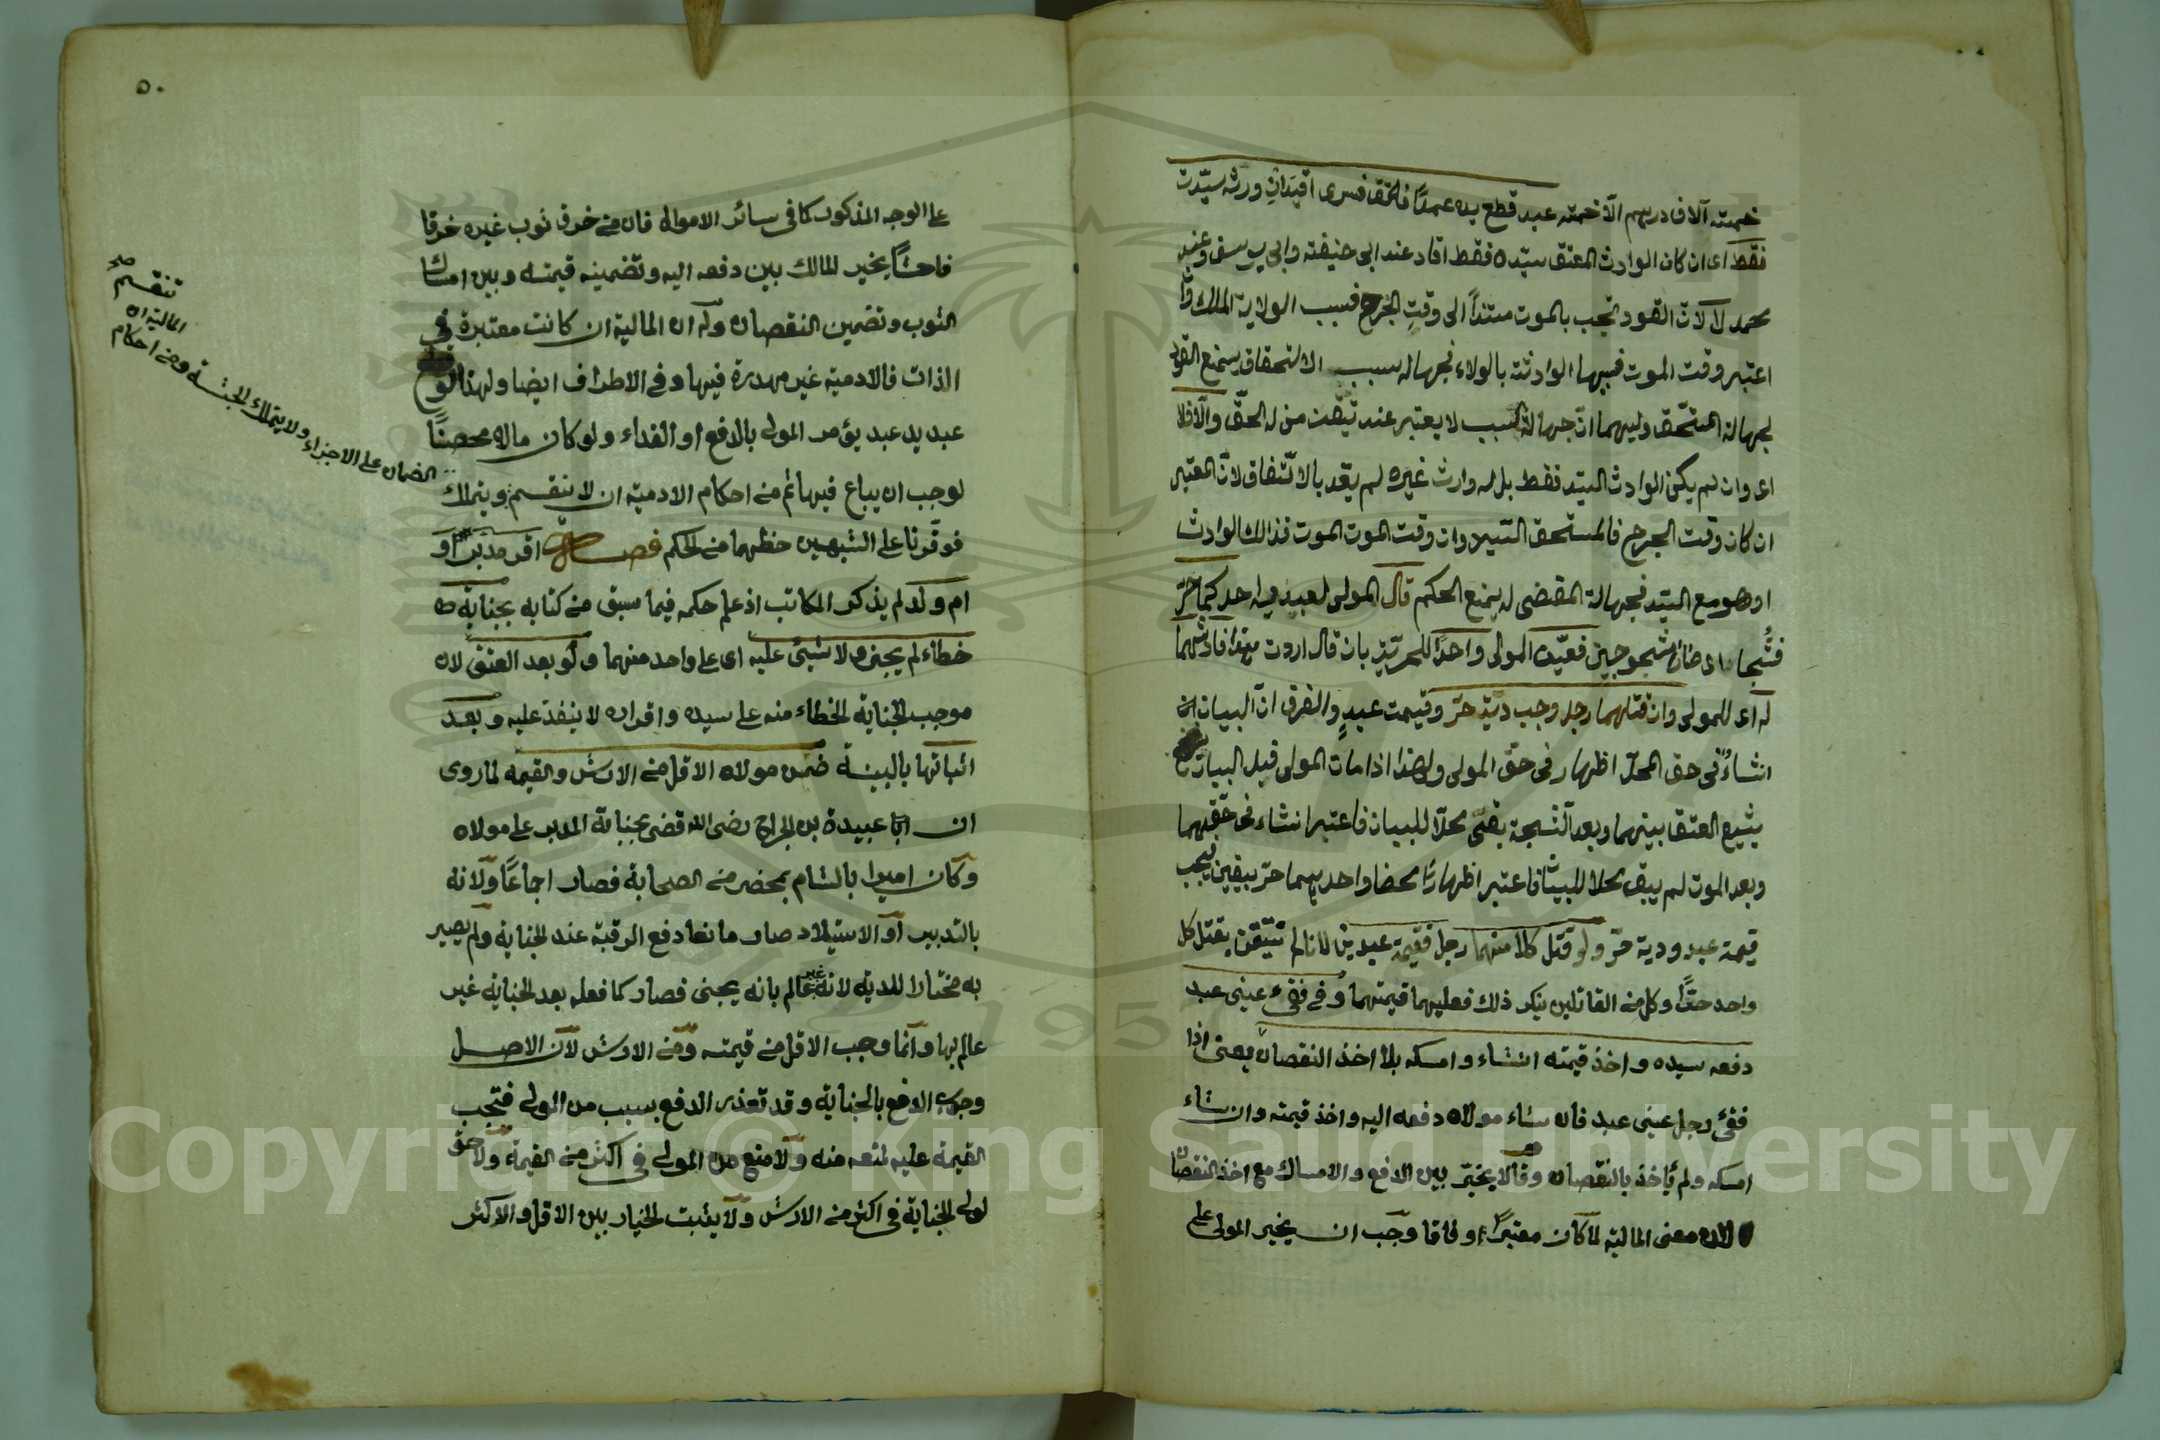 خمسة آلاف درهم الا خمسة عبد قطع يده عمدا فاعتق فسرى اقيد ان ورثه سيّده
فقط اى ان كان الوارث المعتق سيّده فقط اقاد عند ابى حنيفة وابى يوسف وعند
محمد لا لان القود يجب بالموت مستندا الى وقت الجرح فسبب الولاية الملك وان
اعتبر وقت الموت فسببها الوارثة بالولاء فجهالة سبب الاستحقاق يمنع القود
لجهالة المستحق ولهما انّ جهالة السبب لا يعتبر عند تيقّن من له الحقّ والّا فلا
اى وان لم يكن الوارث السيّد فقط بل له وارث غيره لم يقد بالاتّفاق لانّ المعتبر
ان كان وقت الجرح فالمستحق السيد وان وقت الموت الموت فذالك الوارث
او هو مع السيّد فجهالة المقضى له يمنع الحكم قال المولى لعبديه احدكما حرّ
فشُجّا اى صارا مشجوجين فعيّن المولى واحدًا للحريّة بان قال اردت هذا فارشهما
له اى للمولى وان قتلهما رجل وجب ديّة حرّ وقيمت عبدٍ والفرق انّ البيان
انشاءٌ فى حق المحلّ اظهار فى حقّ المولى ولهذا اذا مات المولى قبل البيان
يشيع العتق بينهما وبعد الشجة بقى محلّا للبيان فاعتبر انشاء فى حقّهما
وبعد الموت لم يبق محلا للبيان فاعتبر اظهارًا محضا واحديهما حرّ بيقين فيجب
قيمة عبد ودية حرّ ولو قتل كلا منهما رجل فقيمة عبدين لانا لم نتيقن بقتل كل
واحد حقًا وكل من القاتلين ينكر ذلك فعليهما قيمتهما وفى فقىء عينى عبد
دفعه سيده واخذ قيمته ان شاء وامسكه بلا اخذ النقصان يعنى اذا
فقئ رجل عينى عبد فان شاء مولاه دفعه اليه واخذ قيمته وان شاء
امسكه ولم يأخذ بالنقصان وقالا يخيّر بين الدفع والامساك مع اخذ النقصان
لان معنى المالية لما كان معتبرًا وفاقا وجب ان يخير المولى على
٥٠
على الوجه المذكور كما فى سائر الاموال فان من خرق ثوب غيره خرقا
فاحشًا يخير المالك بين دفعه اليه وتضمينه قيمته وبين امساك
الثوب وتضمين النقصان وله ان المالية ان كانت معتبرة فى
الذات فالادمية غير مهدرة فيها وفى الاطراف ايضا ولهذا لو
عبد يد عبد يؤمر المولى بالدفع او الفداء ولو كان ماله محضًا
لوجب ان يباع فيها ثم من احكام الادمية ان لا ينقسم ويتملك
فوفّرنا على الشبهين حظهما من الحكم فصل اقر مدبّر او
ام ولد لم يذكر المكاتب اذ علم حكمه فيما سبق من كتابه بجناية
خطاء لم يجز ولا شىئ عليه اى على واحد منهما ولو بعد العتق لان
موجب الجناية الخطاء منه على سيده واقراره لا ينفذ عليه وبعد
اثباتها بالبينة ضمن مولاه الاقل من الارش والقيمة لما روى
ان ابا عبيدة بن الجراح رضى الله قضى بجناية المدبر على مولاه
وكان اميرا بالشام بمحضر من الصحابة فصار اجماعًا ولانه
بالتدبير او الاستيلاد صار مانعا دفع الرقبة عند الجناية ولم يصير
به مختارا للدية لانه غير عالم بانه يجنى فصار كما فعله بعد الجناية غير
عالم بها وانما وجب الاقل من قيمته ومن الارش لان الاصل
وجوب الدفع بالجناية وقد تعذر الدفع بسبب من المولى فتجب
القيمة عليه لمنعه منه ولا منع من المولى فى اكثر من القيمة ولا حق
لولى الجناية فى اكثر من الارش ولا يثبت الخيار بين الاقل والاكثر
تنقسم صح
المالية ان
الضمان على الاجزاء ولا يتملك الجثة ومن احكام
Copyright © King Saud University
1957